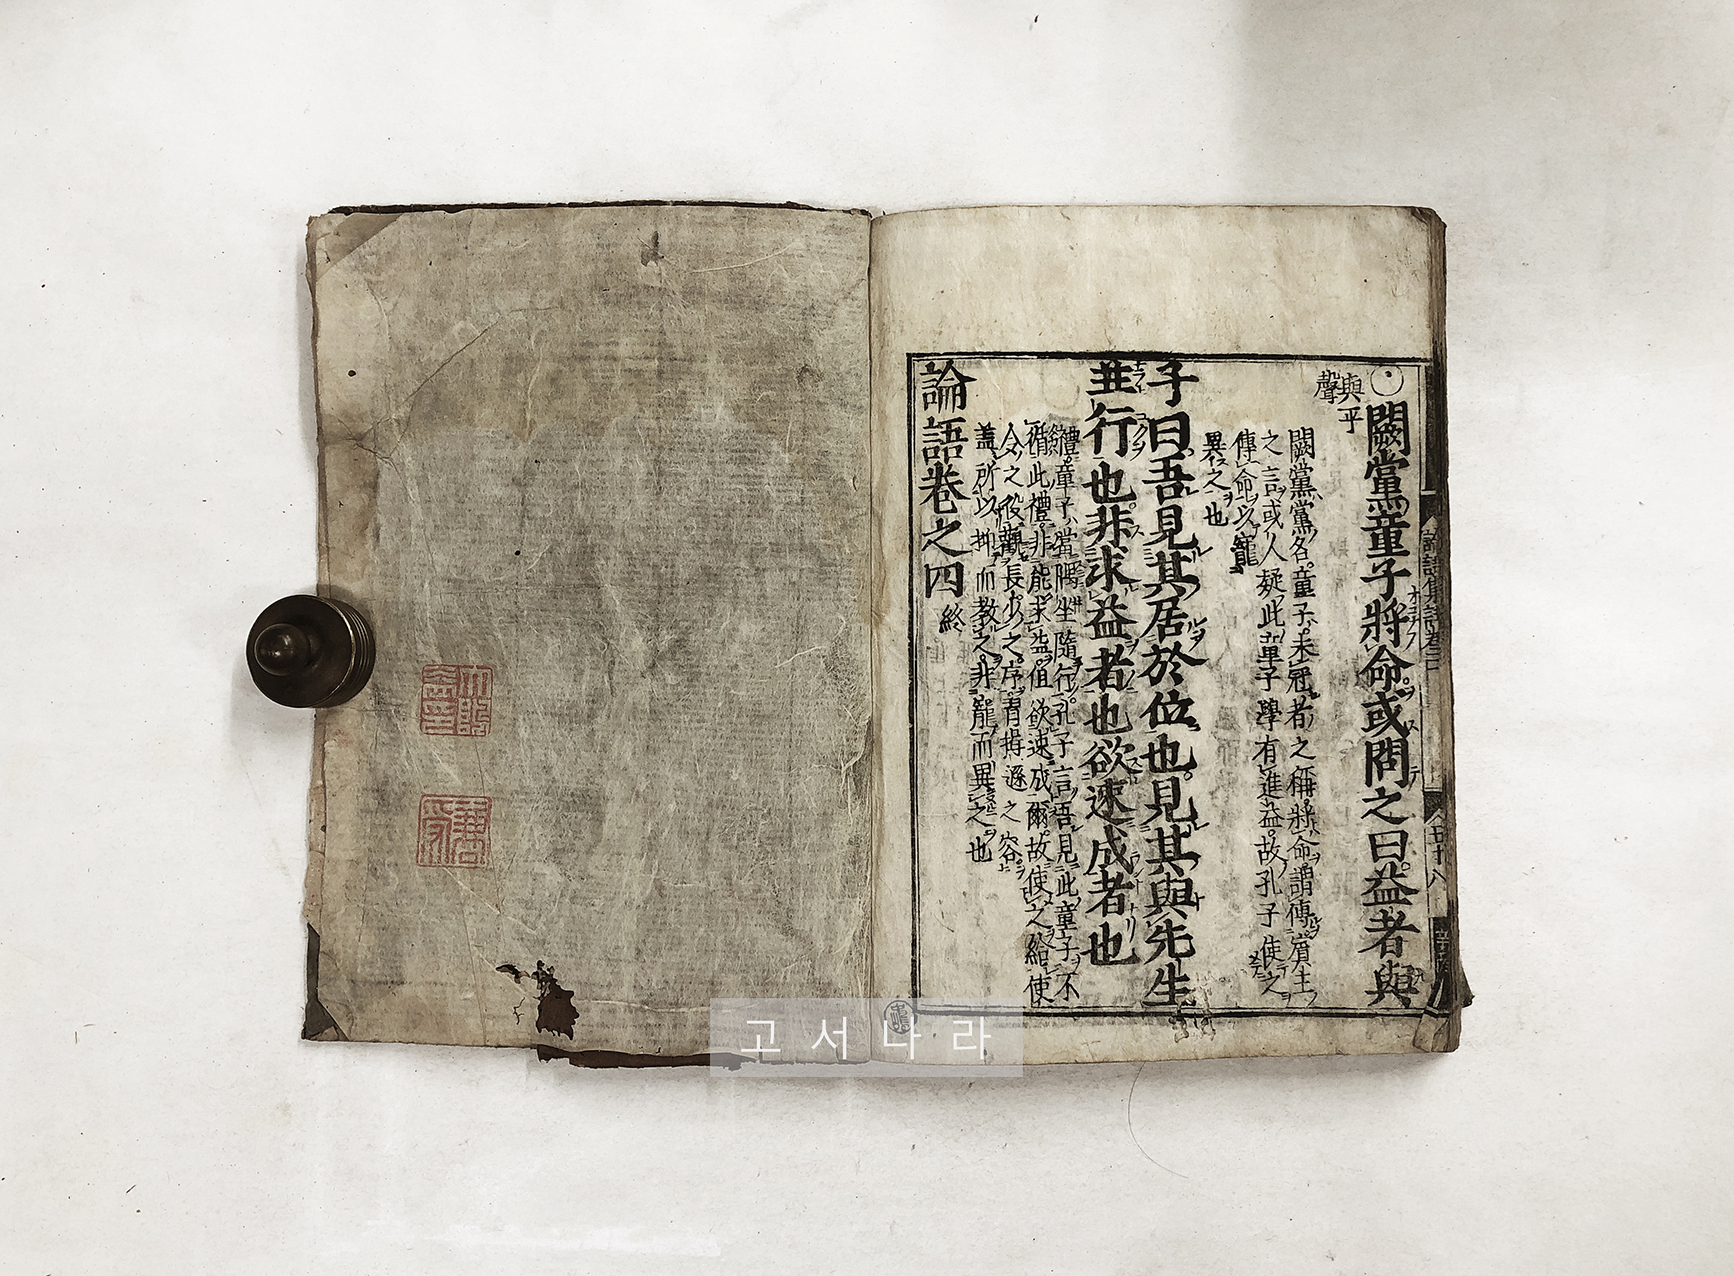 闕黨童子將命或問之曰益者與
與平
聲
闕黨黨名童子未冠者之稱將命謂傳賓主
之言或人疑此童子學有進益故孔子使之
傳命以寵
異之也
子曰吾見其居於位也見其與先生
並行也非求益者也欲速成者也
禮童子當隅坐隨行孔子言吾見此童子不
循此禮非能求益但欲速成爾故使之給使
令之役觀長少之序習揖遜之容
蓋所以抑而教之非寵而異之也
論語卷之四 終
고서나라